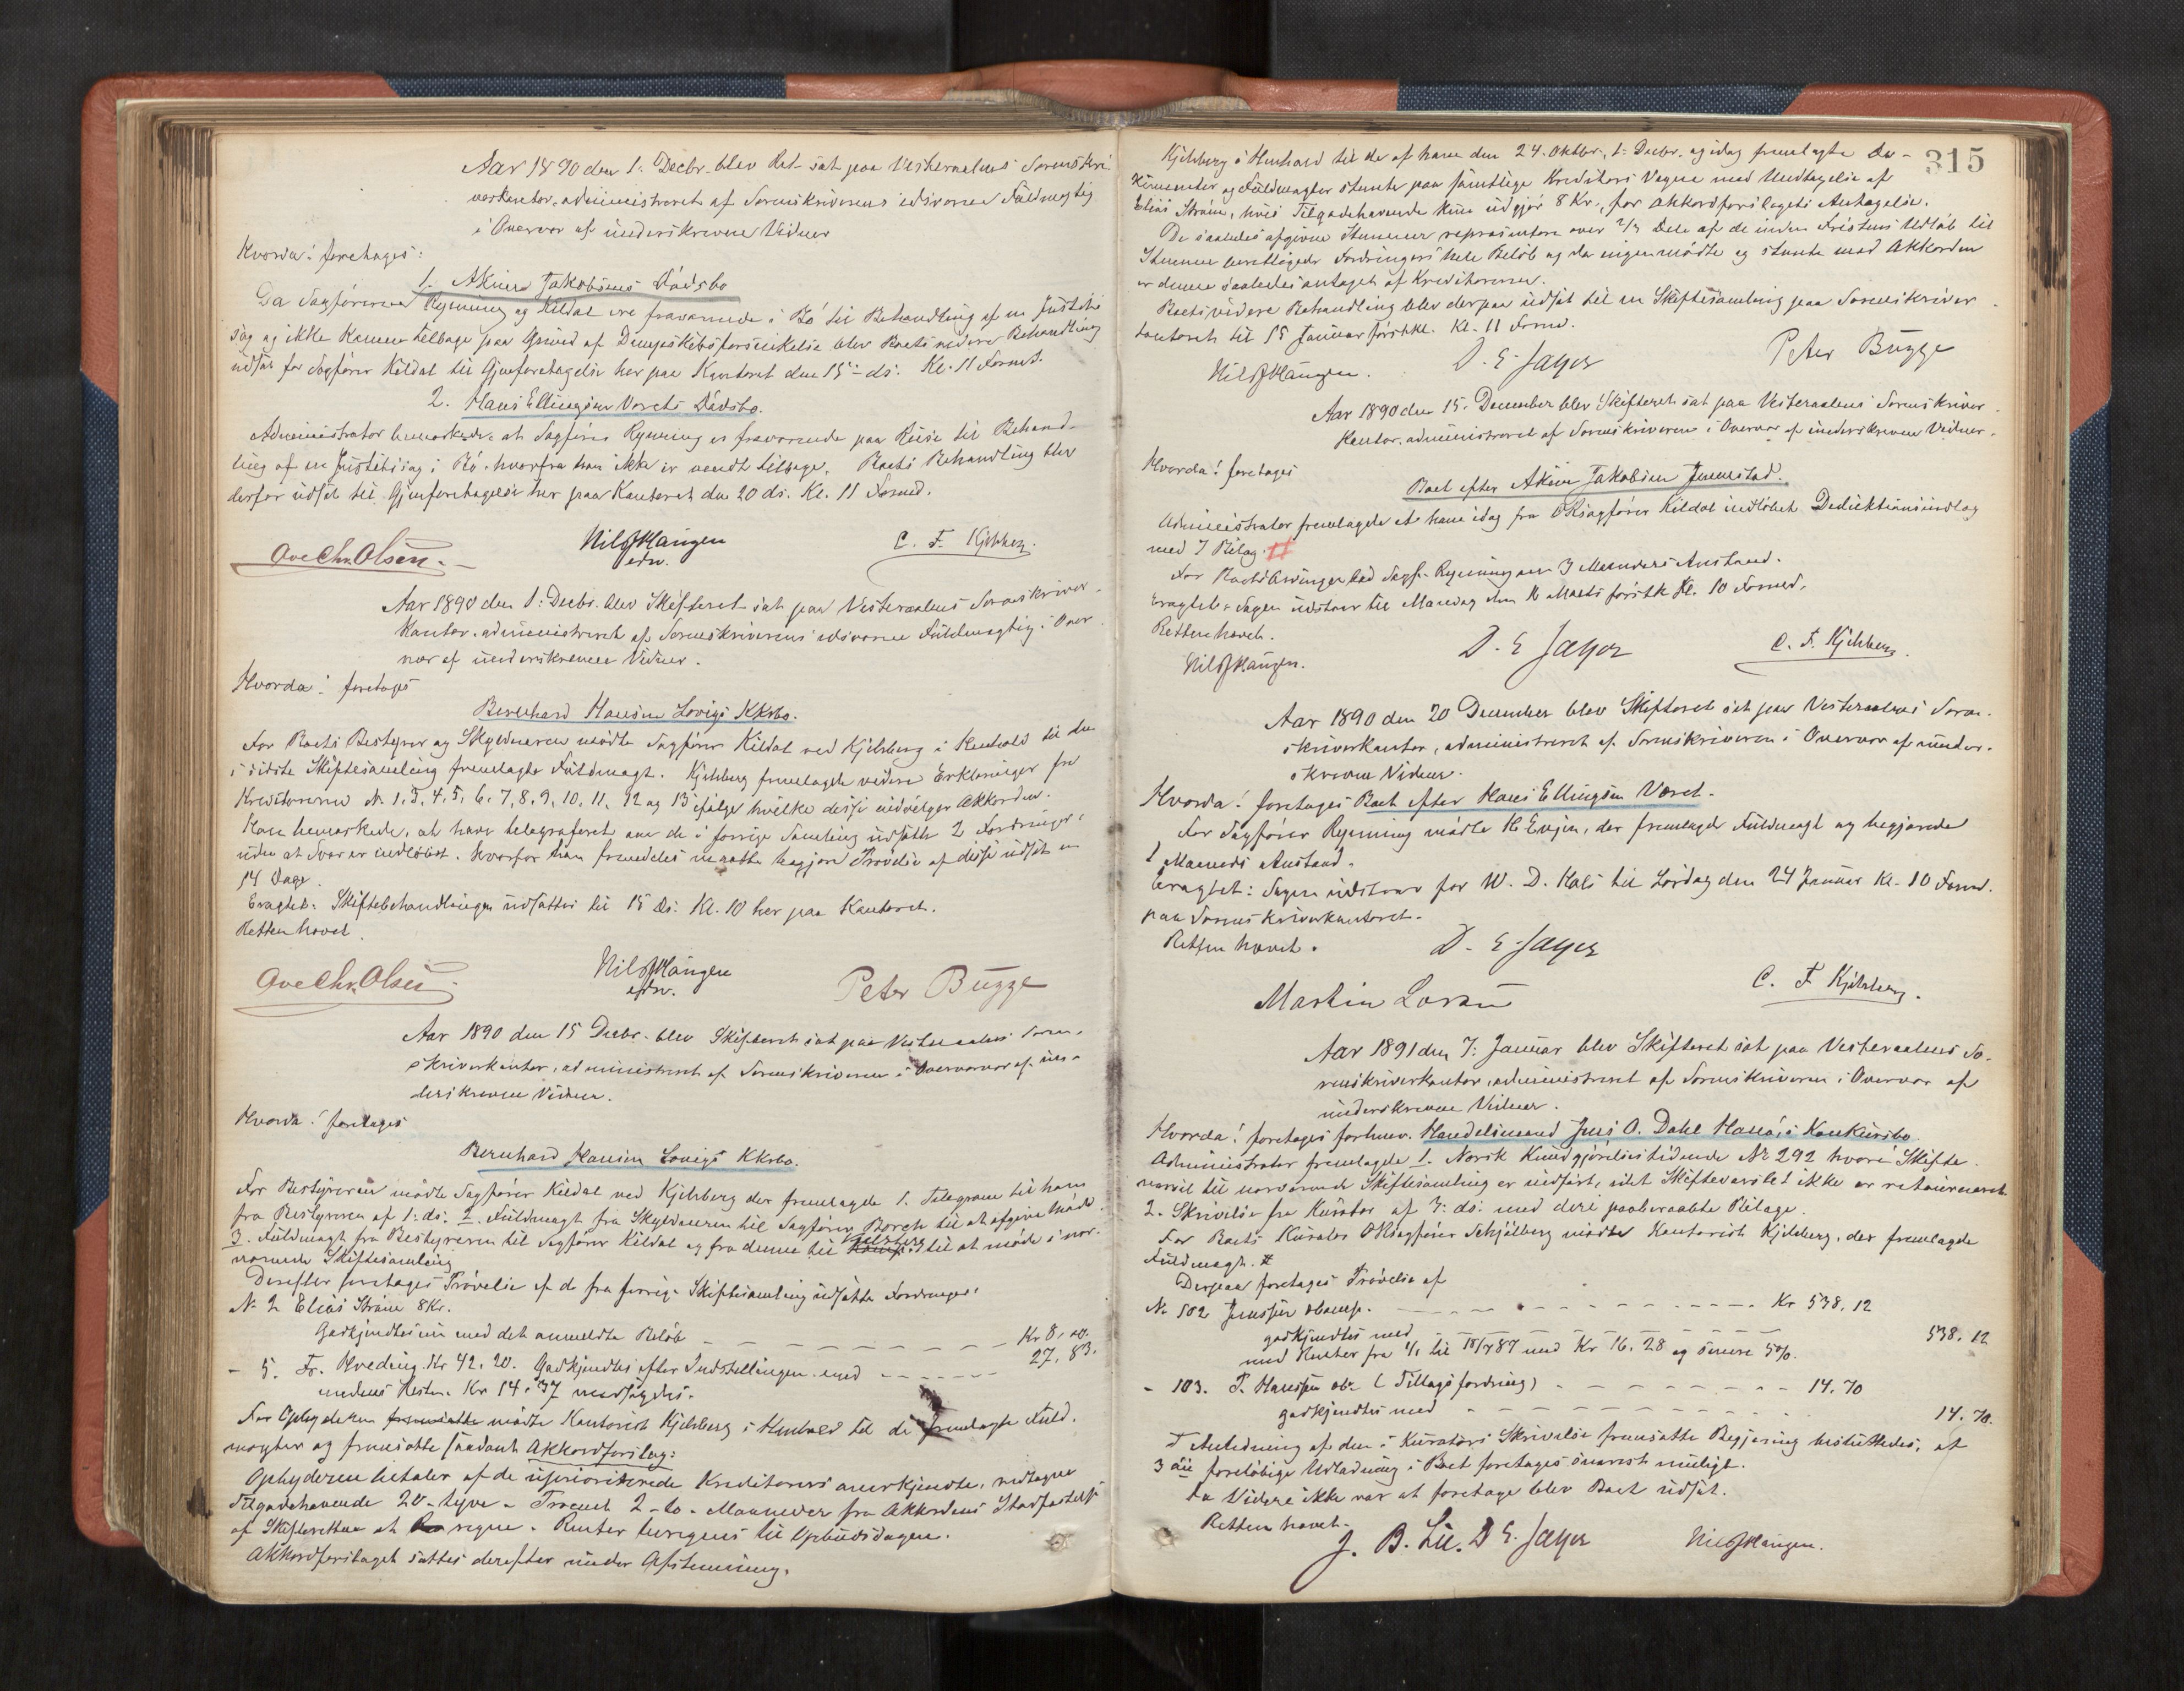 Aar 1890 den 1. Decbr. blev Ret sat paa Vesteraalens Sorenskri
verkontor, administreret af Sorenskriverens edsvorne Fuldmægtig
i Overvær af underskrevne Vidner
Hvorda! foretoges:
1. Akiura Jakobsens Dødsbo
Da Sagførerne Rynning og Kildal ere fraværende i Bø til Behandling af en Justits
sag og ikke kommen tilbage paa Grund af Dampskibsforsinkelse blev Boets videre Behandling
udsat for Sagfører Kildal til Gjenforetagelse her paa Kontoret den 15 ds. Kl. 11 Formd.
2. Hans Ellingsen Vorets Dødsbo.
Administrator bemærkede at Sagfører Rynning er fraværende paa Reise til Behand-
ling af en Justitssag i Bø, hvorfra han ikke er vendt tilbage. Boets Behandling blev
derfor udsat til Gjenforetagelse her paa Kontoret den 20 ds. Kl. 11 Formd.
Ove Chr. Olsen. Nils Haugen C. F. Kjelsberg.
edsv.
Aar 1890 den 1. Decbr. blev Skifteret sat paa Vesteraalens Sorenskriver-
kontor, administreret af Sorenskriverens edsvorne Fuldmægtig i Over
vær af underskrevne Vidner.
Hvorda! foretoges
Bernhard Hansen Lovigs KKsbo.
For Boets Bestyrer og Skyldneren mødte Sagfører Kildal ved Kjelsberg i Henhold til den
i sidste Skiftesamling fremlagte Fuldmagt. Kjelsberg fremlagde videre Erklæringer fra
Kreditorerne No 1, 3, 4, 5, 6, 7, 8, 9, 10, 11, 12 og 13 ifølge hvilke disse indvilger Akkorden.
Han bemærkede, at have telegraferet om de i forrige Samling udsatte 2 Fordringer,
uden at Svar er indløbet, hvorfor han fremdeles maatte begjære Prøvelse af disse udsat en
14 Dage.
Eragtet: Skiftebehandlingen udsættes til 15 Ds. Kl. 10 her paa Kontoret.
Retten hævet.
Ove Chr. Olsen. Nils Haugen Peter Bugge
edsv.
Aar 1890 den 15 Decbr. blev Skifteret sat paa Vesteraalens Soren-
skriverkontor, administreret af Sorenskriveren i Overværvær af un-
derskrevne Vidner.
Hvorda! foretoges
Bernhard Hansen Lovigs KKsbo.
For Bestyreren mødte Sagfører Kildal ved Kjelsberg der fremlagde 1. Telegram til ham
fra Bestyreren af 1. ds. 2. Fuldmagt fra Skyldneren til Sagfører Borch til at afgive Møde
3. Fuldmagt fra Bestyreren til Sagfører Kildal og fra denne til Kjelsberg til at møde i nær-
værende Skiftesamling
Derefter foretoges Prøvelse af de fra forrige Skiftesamling udsatte Fordringer:
No 2 Elias Strøm 8 Kr.
Godkjendtes med det anmeldte Beløb Kr 8,00.
- 5. Fr. Hveding. Kr 42,20. Godkjendtes efter Indstillingen med 27,83.
medens Resten Kr 14,37 nægtedes.
For Opbyderen fremsatte mødte Kontorist Kjelsberg i Henhold til de fremlagte Fuld.
magter og fremsatte saadant Akkordforslag:
Opbyderen betaler af de uprioriterede Kreditorers anerkjendte, vedtagne
Tilgodehavende 20 - tyve - Procent 2 - to - Maaneder fra Akkordens Stadfæstelse
af Skifteretten at regne. Renter beregnes til Opbudsdagen.
Akkordforslaget sattes derefter under Afstemning.
315
Kjelsberg i Henhold til de af ham den 24. Oktbr., 1. Decbr. og idag fremlagte Do-
kumenter og Fuldmagter stemte paa samtlige Kreditors Vegne med Undtagelse af
Elias Strøm, hvis Tilgodehavende kun udgjør 8 Kr., for Akkordforslagets Antagelse.
De saaledes afgivne Stemmer repræsentere over 2/3 Dele af de inden Fristens Udløb til
Stemme berettigede Fordringers hele Beløb og da ingen mødte og stemte mod Akkorden
er denne saaledes antaget af Kreditorerne.
Boets videre Behandling blev derpaa udsat til en Skiftesamling paa Sorenskriver
kontoret til 15 Januar førstk. Kl. 11 Formd.
Nils Haugen. D. E. Jager Peter Bugge
Aar 1890 den 15. December blev Skifteret sat paa Vesteraalens Sorenskriver
kontor, administreret af Sorenskriveren i Overvær af underskrevne Vidner.
Hvorda! foretoges
Boet efter Akiur Jakobsen Jennestad.
Administrator fremlagde et ham idag fra ORsagfører Kildal indløbet Deduktionsindlæg
med 7 Bilag. #
For Boets Arvinger bad Sagf. Rynning om 3 Maaneders Anstand.
Eragtet: Sagen udstaar til Mandag den 16 Marts førstk Kl. 10 Formd.
Retten hævet.
Nils Haugen. D. E Jager C. F. Kjelsberg.
Aar 1890 den 20 December blev Skifteret sat paa Vesteraalens Soren-
skriverkontor, administreret af Sorenskriveren i Overvær af under-
skrevne Vidner.
Hvorda! foretoges Boet efter Hans Ellingsen Voret.
For Sagfører Rynning mødte H. Evjen, der fremlagde Fuldmagt og begjærede
1 Maaneds Anstand.
Eragtet: Sagen udstaar for W. D. Hals til Lørdag den 24 Januar Kl. 10 Formd.
paa Sorenskriverkontoret.
Retten hævet. D. E. Jager
Martin C. F Kjelsberg.
Aar 1891 den 7. Januar blev Skifteret sat paa Vesteraalens So-
renskriverkontor, administreret af Sorenskriveren i Overvær af
underskrevne Vidner.
Hvorda! foretoges forhenv. Handelsmand Jens O. Dahl Konkursbo
Administrator fremlagde 1. Norsk Kundgjørelsestidende No 292 hvori Skifte
varsel til nærværende Skiftesamling er indført, idet Skiftevarslet ikke er retourneret
2. Skrivelse fra Kurator af 3. ds. med deri paaberaabte Bilage.
For Boets Kurator ORsagfører Schjølberg mødte Kontorist Kjelsberg, der fremlagde
Fuldmagt. #
Derpaa foretoges Prøvelse af
No 502 Kr 538,12
godkjendtes med 538,12
med Renter fra 1/1 til 18/7 87 med Kr 16,28 og senere 5%.
- 103. P. Hanssen (Tillægsfordring) 14,70
godkjendtes med 14,70.
I Anledning af den i Kurators Skrivelse fremsatte Begjæring besluttedes, at
3die foreløbige Udlodning i Boet foretages snarest muligt.
Da Videre ikke var at foretage blev Boet udsat.
Retten hævet.
J. B. Lie. D E. Jager Nils Haugen.